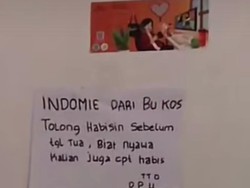 INDOMIE DARI BU KOS
Tolong Habisin Sebelum
tgl Tua, Biar Nyawa
Kalian Juga cpt habis
TTD